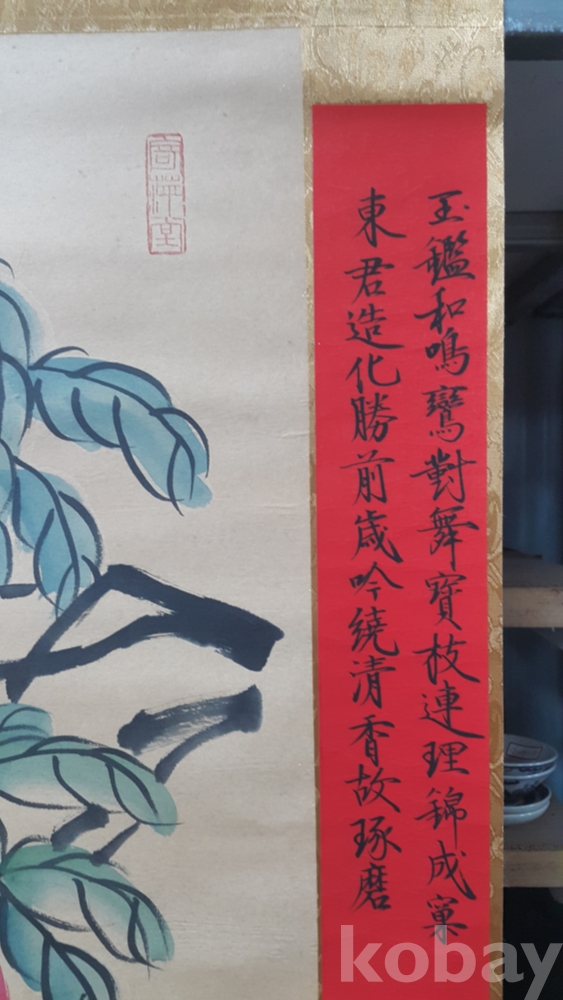 玉鑑和鳴鸞對舞寶枝連理錦成窠
東君造化勝前歲吟繞清香故琢磨
kobay